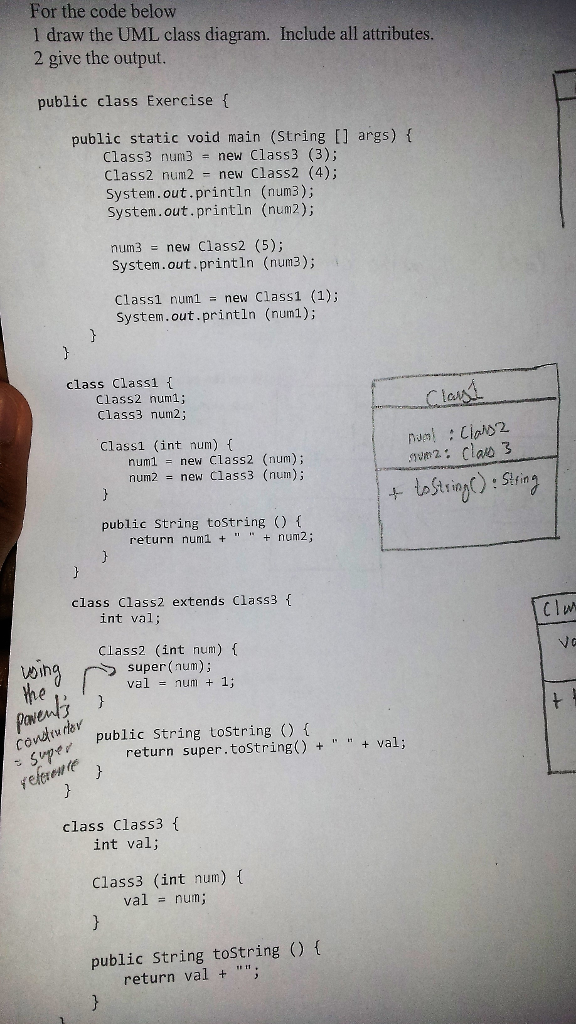 For the code below
1 draw the UML class diagram. Include all attributes.
2 give the output.
public class Exercise {
public static void main (String [] args) {
Class3 num3 = new Class3 (3);
Class2 num2 = new Class2 (4);
System.out.println (num3);
System.out.println (num2);
num3 = new Class2 (5);
System.out.println (num3);
Class1 num1 = new Class1 (1);
System.out.println (num1);
}
}
class Class1 {
Class2 num1;
Class3 num2;
Class1 (int num) {
num1 = new Class2 (num);
num2 = new Class3 (num);
}
public String toString () {
return num1 + " " + num2;
}
}
Class1
num1 : Class2
num2 : Class 3
+ toString() : String
class Class2 extends Class3 {
int val;
Class2 (int num) {
super(num);
val = num + 1;
}
public String toString () {
return super.toString() + " " + val;
}
}
using
the
parent's
constructor
= super
reference
class Class3 {
int val;
Class3 (int num) {
val = num;
}
public String toString () {
return val + "";
}
}